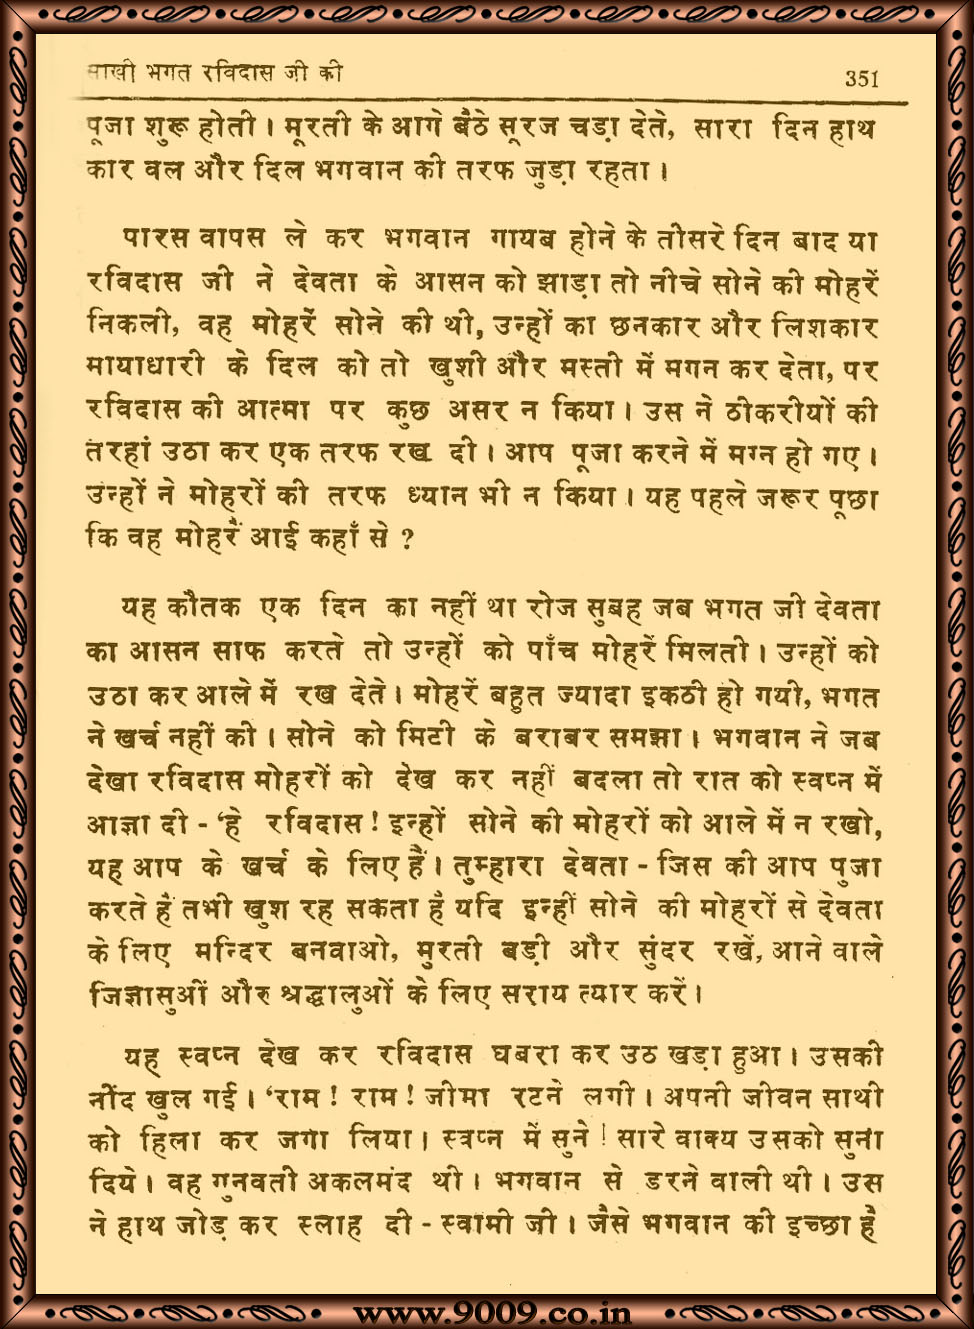 साखी भगत रविदास जी की
351
पूजा शुरू होती। मूरती के आगे बैठे सूरज चड़ा देते, सारा दिन हाथ
कार वल और दिल भगवान की तरफ जुड़ा रहता।
पारस वापस ले कर भगवान गायब होने के तीसरे दिन बाद या
रविदास जी ने देवता के आसन को झाड़ा तो नीचे सोने की मोहरें
निकली, वह मोहरें सोने की थी, उन्हों का छनकार और लिशकार
मायाधारी के दिल को तो खुशी और मस्ती में मगन कर देता, पर
रविदास की आत्मा पर कुछ असर न किया। उस ने ठीकरीयों की
तरहां उठा कर एक तरफ रख दी। आप पूजा करने में मग्न हो गए।
उन्हों ने मोहरों की तरफ ध्यान भी न किया। यह पहले जरूर पूछा
कि वह मोहरें आई कहाँ से ?
यह कौतक एक दिन का नहीं था रोज सुबह जब भगत जी देवता
का आसन साफ करते तो उन्हों को पाँच मोहरें मिलती। उन्हों को
उठा कर आले में रख देते। मोहरें बहुत ज्यादा इकठी हो गयी, भगत
ने खर्च नहीं की। सोने को मिटी के बराबर समझा। भगवान ने जब
देखा रविदास मोहरों को देख कर नहीं बदला तो रात को स्वप्न में
आज्ञा दी - 'हे रविदास ! इन्हों सोने की मोहरों को आले में न रखो,
यह आप के खर्च के लिए हैं। तुम्हारा देवता - जिस की आप पुजा
करते हैं तभी खुश रह सकता है यदि इन्हीं सोने की मोहरों से देवता
के लिए मन्दिर बनवाओ, मुरती बड़ी और सुंदर रखें, आने वाले
जिज्ञासुओं और श्रद्धालुओं के लिए सराय त्यार करें।
यह स्वप्न देख कर रविदास घबरा कर उठ खड़ा हुआ। उसकी
नींद खुल गई। 'राम ! राम ! जीमा रटने लगी। अपनी जीवन साथी
को हिला कर जगा लिया। स्वप्न में सुने ! सारे वाक्य उसको सुना
दिये। वह गुनवती अकलमंद थी। भगवान से डरने वाली थी। उस
ने हाथ जोड़ कर स्लाह दी - स्वामी जी। जैसे भगवान की इच्छा है
www.9009.co.in